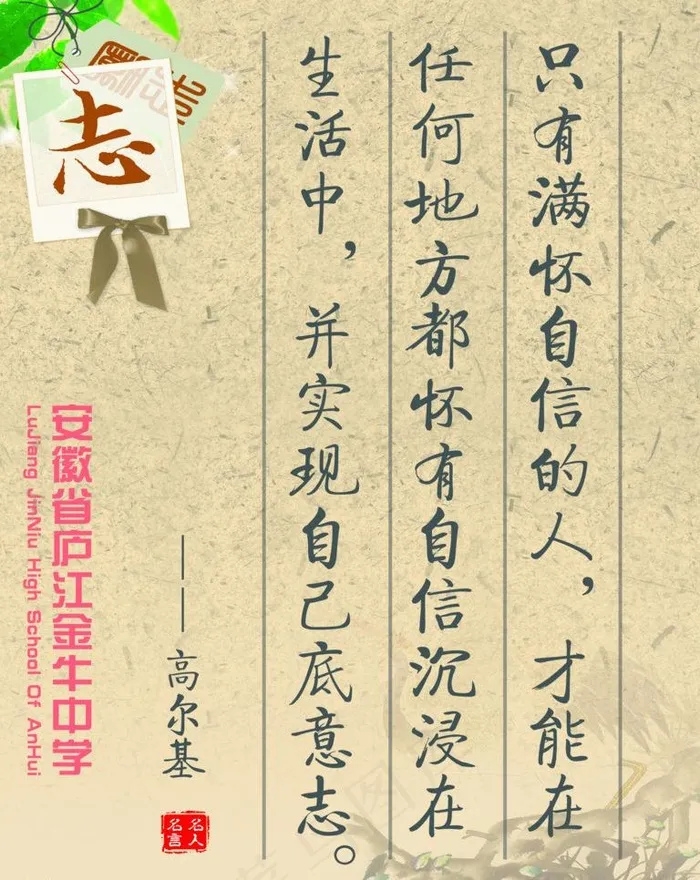 只有满怀自信的人，才能在
任何地方都怀有自信沉浸在
生活中，并实现自己底意志。
——高尔基
名人
名言
志
安徽省庐江金牛中学
LuJiang JinNiu High School Of AnHui